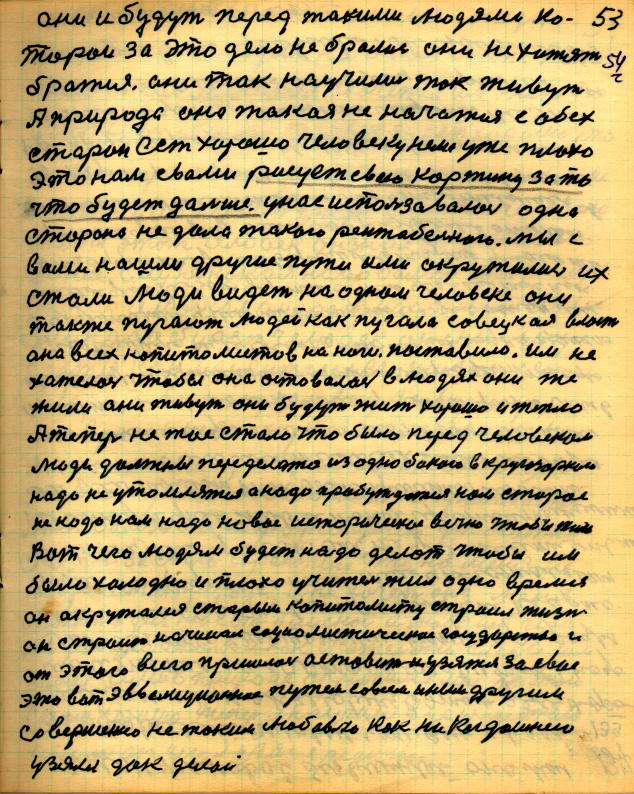 они и будут перед такими людями ко- 53
торои за это дело не брались они не хотят 54
братся. они так научились так живут
А природа она такая не начатая с обех
старон Ест хорошо человеку нем уже плохо
это нам свами рисует свою картину за то
что будет дальше. унас использавалась одна
сторона не дала такого рентабелного. мы с
вами нашли другие пути ими окружились их
стали Люди видет на одном человеке они
также пугают людей как пугала совецкая власт
она всех копитолистов на ноги. поставила. им не
хателось чтобы она оставалась в людях они же
жили они живут они будут жит хорошо и тепло
А тепер не тое стало что было перед человеком
люди должны переделатся из одно бокого в
надо не утомлятся а надо прабуждатся нам старое
не надо нам надо новое историческое вечно чтобы
Вот чего людям будет надо делат чтобы им
было халодно и плохо учител жил одно время
он окружался старым копитолисту строил жизн
он строит начинал социолистическое государство и
от этого всего пришлось оставит и узятся за свае
это вот эввалюционное путем совсем иным другим
совершенно не таким любовью как ни Когдашнею
узяли дак делай